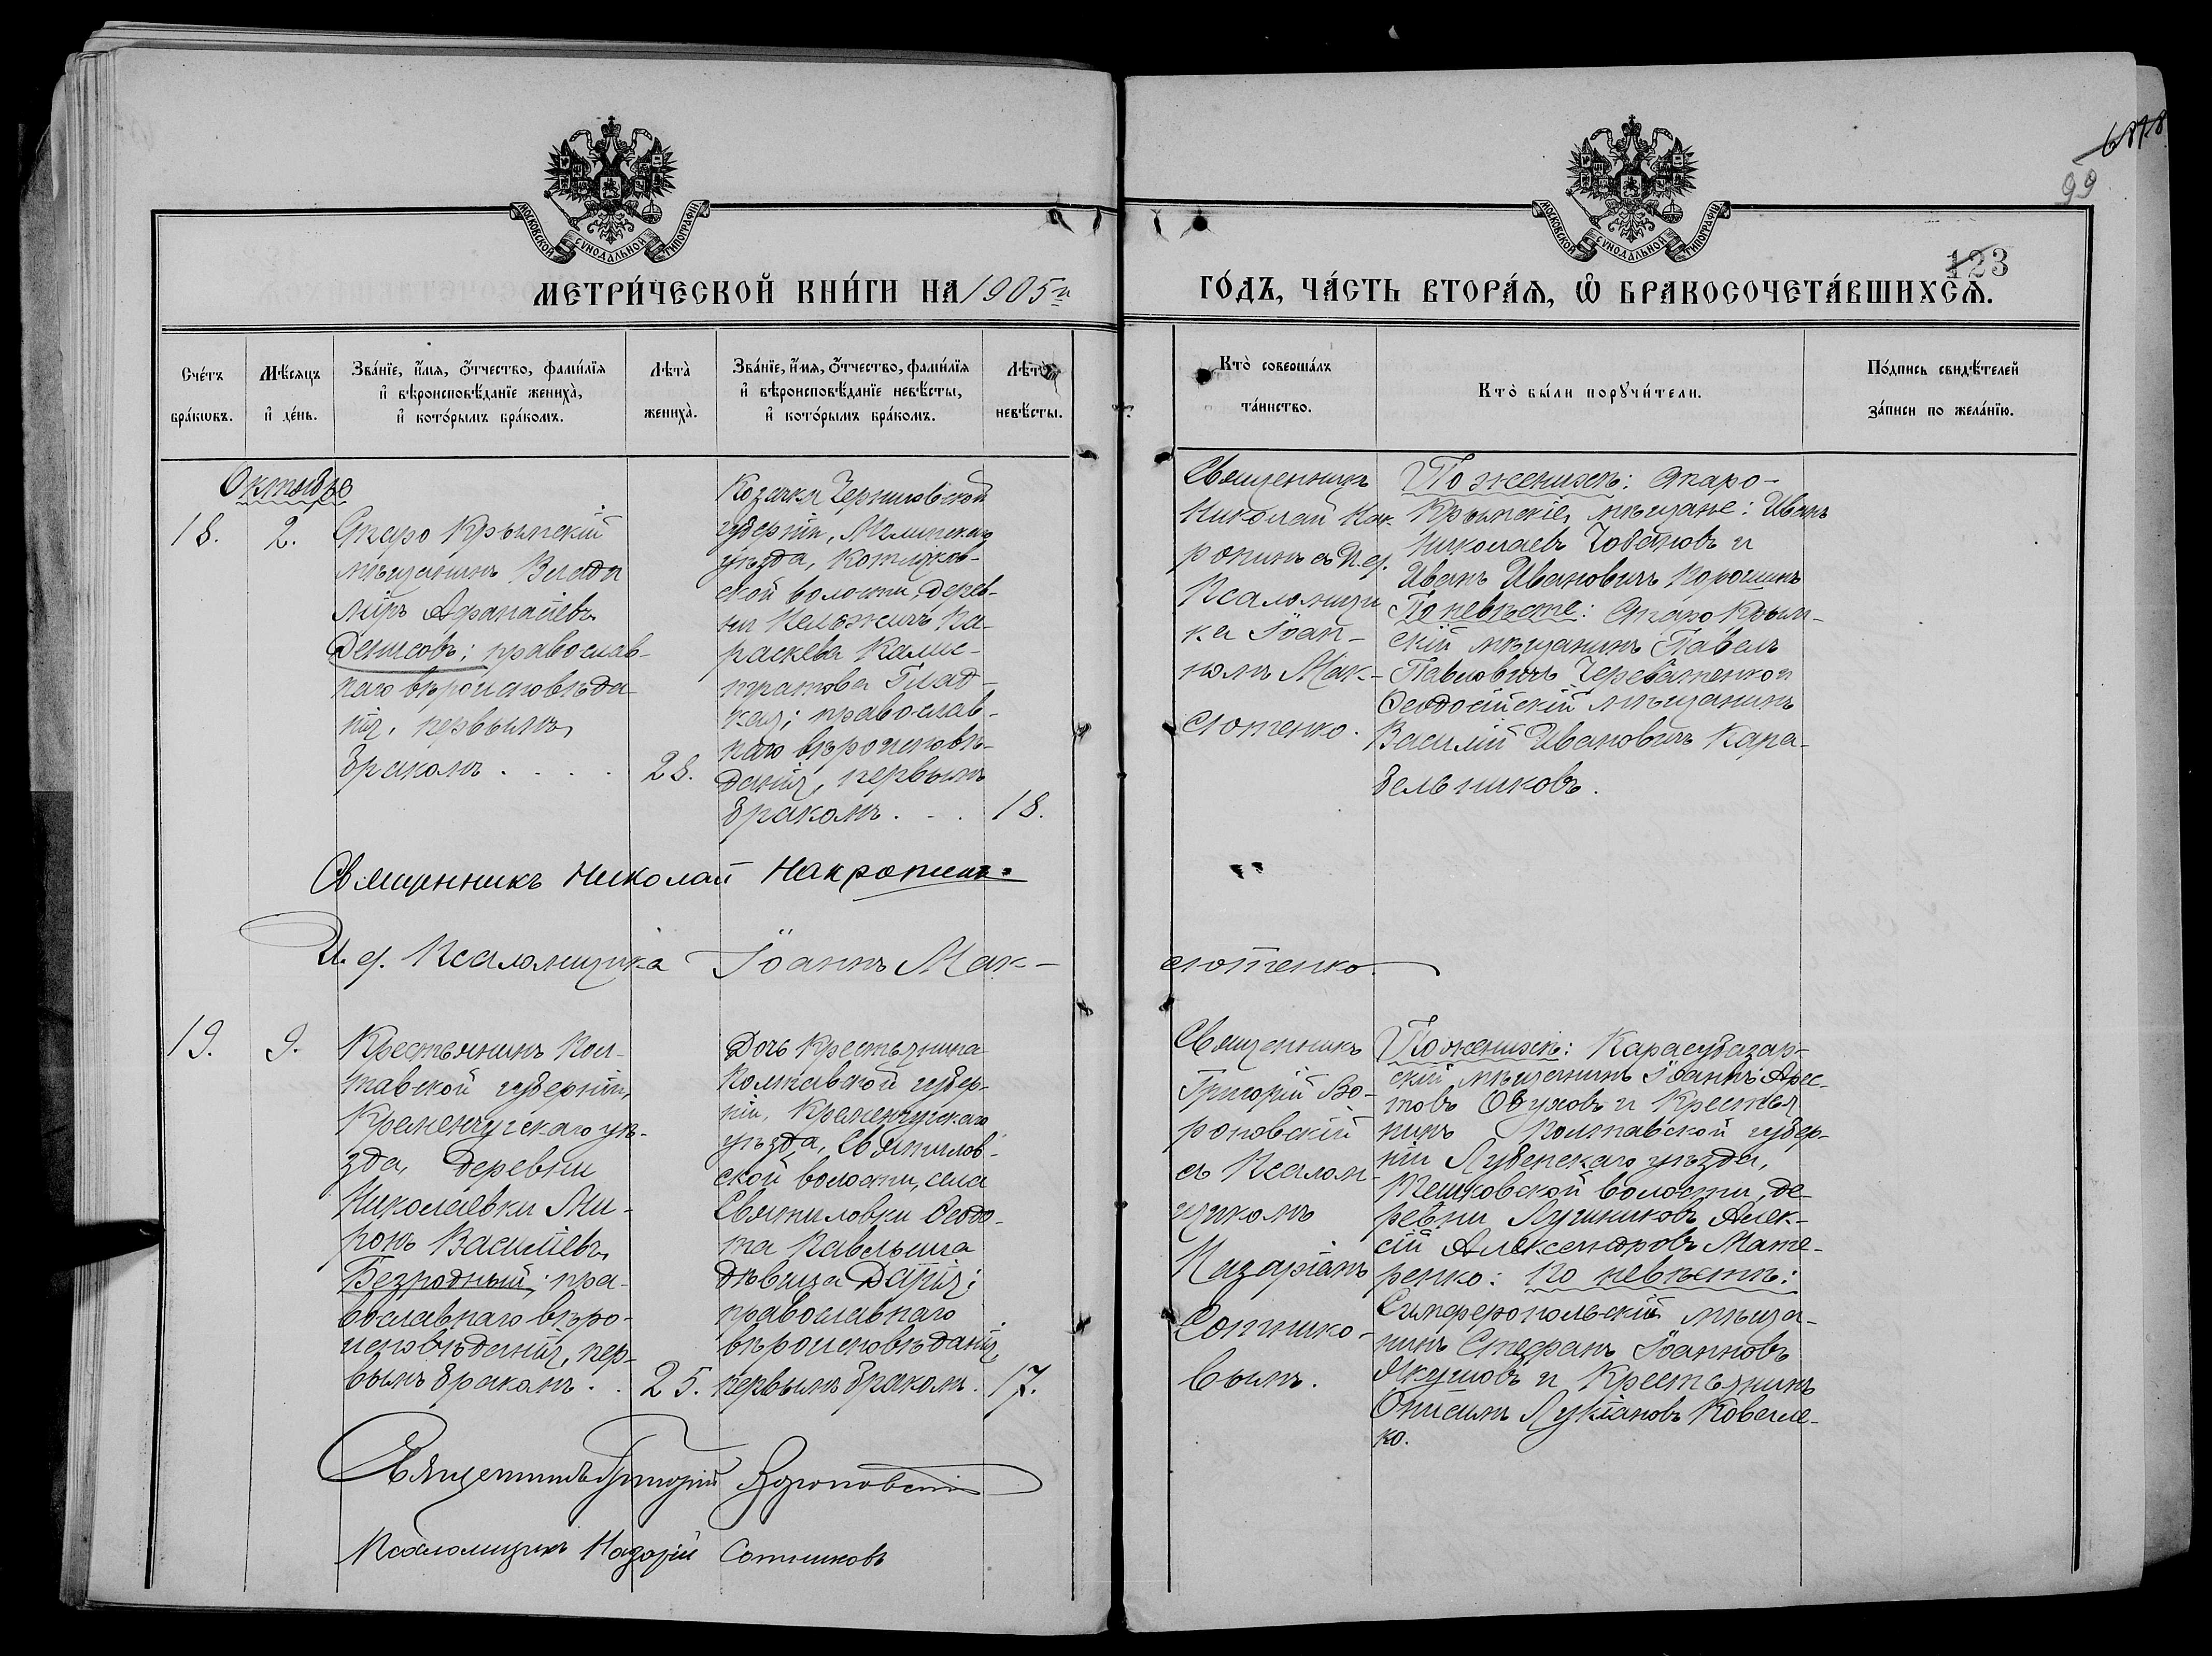 6818
99
МОСКОВСКОЙ СѴНОДАЛЬНОЙ ТИПОГРАФІИ
МОСКОВСКОЙ СѴНОДАЛЬНОЙ ТИПОГРАФІИ
123
МЕТРИ́ЧЕСКОЙ КНИ́ГИ НА 1905й
ГО́ДЪ, ЧА́СТЬ ВТОРА́Я, Ѡ БРАКОСОЧЕТА́ВШИХСЯ.
Сче́тъ бра́кѡвъ.
Мѣ́сяцъ и де́нь.
Зва́нїе, и́мя, о́тчество, фами́лїя и вѣроисповѣ́данїе жениха̀, и кото́рымъ бра́комъ.
Лѣта̀ жениха̀.
Зва́нїе, и́мя, о́тчество, фами́лїя и вѣроисповѣ́данїе невѣ́сты, и кото́рымъ бра́комъ.
Лѣта̀ невѣ́сты.
Кто̀ соверша́лъ та́инство.
Кто̀ бы́ли порꙋчи́тели.
По́дпись свидѣ́телей за́писи по жела́нїю.
Октябрь
18.
2.
Старо Крымскій
мѣщанинъ Влади
міръ Афанасіевъ
Денисовъ; православ-
наго вѣроисповѣда-
нія, первымъ
бракомъ . . . .
28.
Козачка Черниговской
губерніи, Мглинскаго
уѣзда, Котляков-
ской волости, дерев-
ни Келожичъ Па-
раскева Калис-
тратова Глад-
кая; православ-
наго вѣроисповѣ-
данія, первымъ
бракомъ . . .
18.
Священникъ
Николай Нак-
ропинъ съ И.д.
Псаломщи
ка Іоан-
номъ Мак-
сютенко.
По женихѣ: Старо-
Крымскіе мѣщане: Иванъ
Николаевъ Човановъ и
Иванъ Ивановичъ Порошинъ
По невѣстѣ: Старо Крым-
скій мѣщанинъ Павелъ
Павловичъ Череватенко и
Ѳеодосійскій мѣщанинъ
Василій Ивановичъ Кара-
бельниковъ.
Священникъ Николай Накропинъ.
И. д. Псаломщика Іоаннъ Мак-
сютенко
19.
9.
Крестьянинъ Пол-
тавской губерніи,
Кременчугскаго уѣ-
зда, деревни
Николаевки Ми-
ронъ Василіевъ
Безродный; пра-
вославнаго вѣро-
исповѣданія, пер-
вымъ бракомъ . .
25.
Дочь крестьянина
Полтавской губер-
ніи, Кременчугскаго
уѣзда, Святилов-
ской волости, села
Святиловки Ѳеодо-
та Павлыша
дѣвица Дарія;
православнаго
вѣроисповѣданія,
первымъ бракомъ.
17.
Священникъ
Григорій Во-
роновскій
съ Псалом-
щикомъ
Назаріемъ
Сотнико-
вымъ.
По женихѣ: Карасубазар-
скій мѣщанинъ Іоаннъ Арес-
товъ Обуховъ и Крестья
нинъ Полтавской губер-
ніи Лубенскаго уѣзда,
Тишковской волости, де-
ревни Лушниковъ Алек-
сій Александровъ Мате-
ренко: По невѣстѣ:
Симферопольскій мѣща-
нинъ Стефанъ Іоанновъ
Якушовъ и Крестьянинъ
Онисимъ Лукіановъ Ковален-
ко.
Священникъ Григорій Вороновскій
Псаломщикъ Назарій Сотниковъ